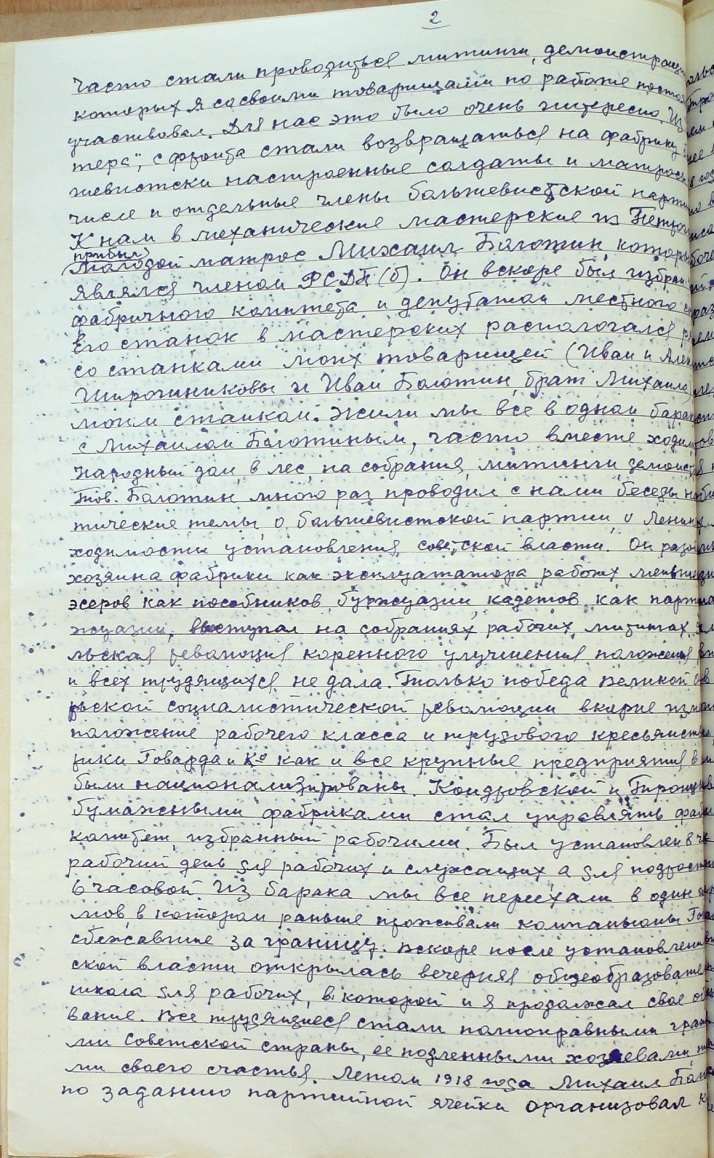 2
Часто стали проводиться митинги, демонстрац
которых я со своими товарищами по работе постоя
участвовал. Для нас это было очень интересно. Из
тера", с фронта стали возвращаться на фабрику
шевистски настроенные солдаты и матросы
числе и отдельные члены большевистской парти
К нам в механические мастерские из Петрог
прибыл
молодой матрос Михаил Болотин, которы
являлся членом РСДП(б). Он вскоре был избран
фабричного комитета и депутатом местного
Его станок в мастерских распологался
со станками моих товарищей (Иван и Алек
Широчиниковы и Иван Болотин, брат Михаила)
моим станком. Жили мы все в одном барак
с Михаилом Болотиным, часто вместе ходили
Народный дом, в лес, на собрания, митинги демонст
тов. Болотин много раз проводил с нами беседы на
тические темы о большевистской партии, о Ленине
ходимости установления советской власти. Он разо
хозяина фабрики как эксплуататора рабочих меньше
эсеров как пособников буржуазии, кадетов как парт
жуазии, выступал на собраниях рабочих, митингах.
льская революция коренного улучшения положения
и всех трудящихся не дала. Только победа Великой
рьской социалистической революции вкорне изме
положение рабочего класса и трудового крестьянст
рики Говарда и Ко как и все крупные предприятия
были национализированы. Кондровской и Троицк
бумажными фабриками стал управлять фаб
комитет, избранный рабочими. Был установлен 8 ч
рабочий день для рабочих и служащих а для подрост
6 часовой. Из барака мы все переехали в один
мов в котором раньше проживали компаньоны Гов
сбежавшие за границу. Вскоре после установлени
ской власти открылась вечерняя общеобразовате
школа для рабочих, в которой и я продолжал свое о
вание. Все трудящиеся стали полноправными граж
ми Советской страны, ее подленными хозяевами
ми своего счастья. Летом 1918 года Михаил Бол
по заданию партийной ячейки организовал к